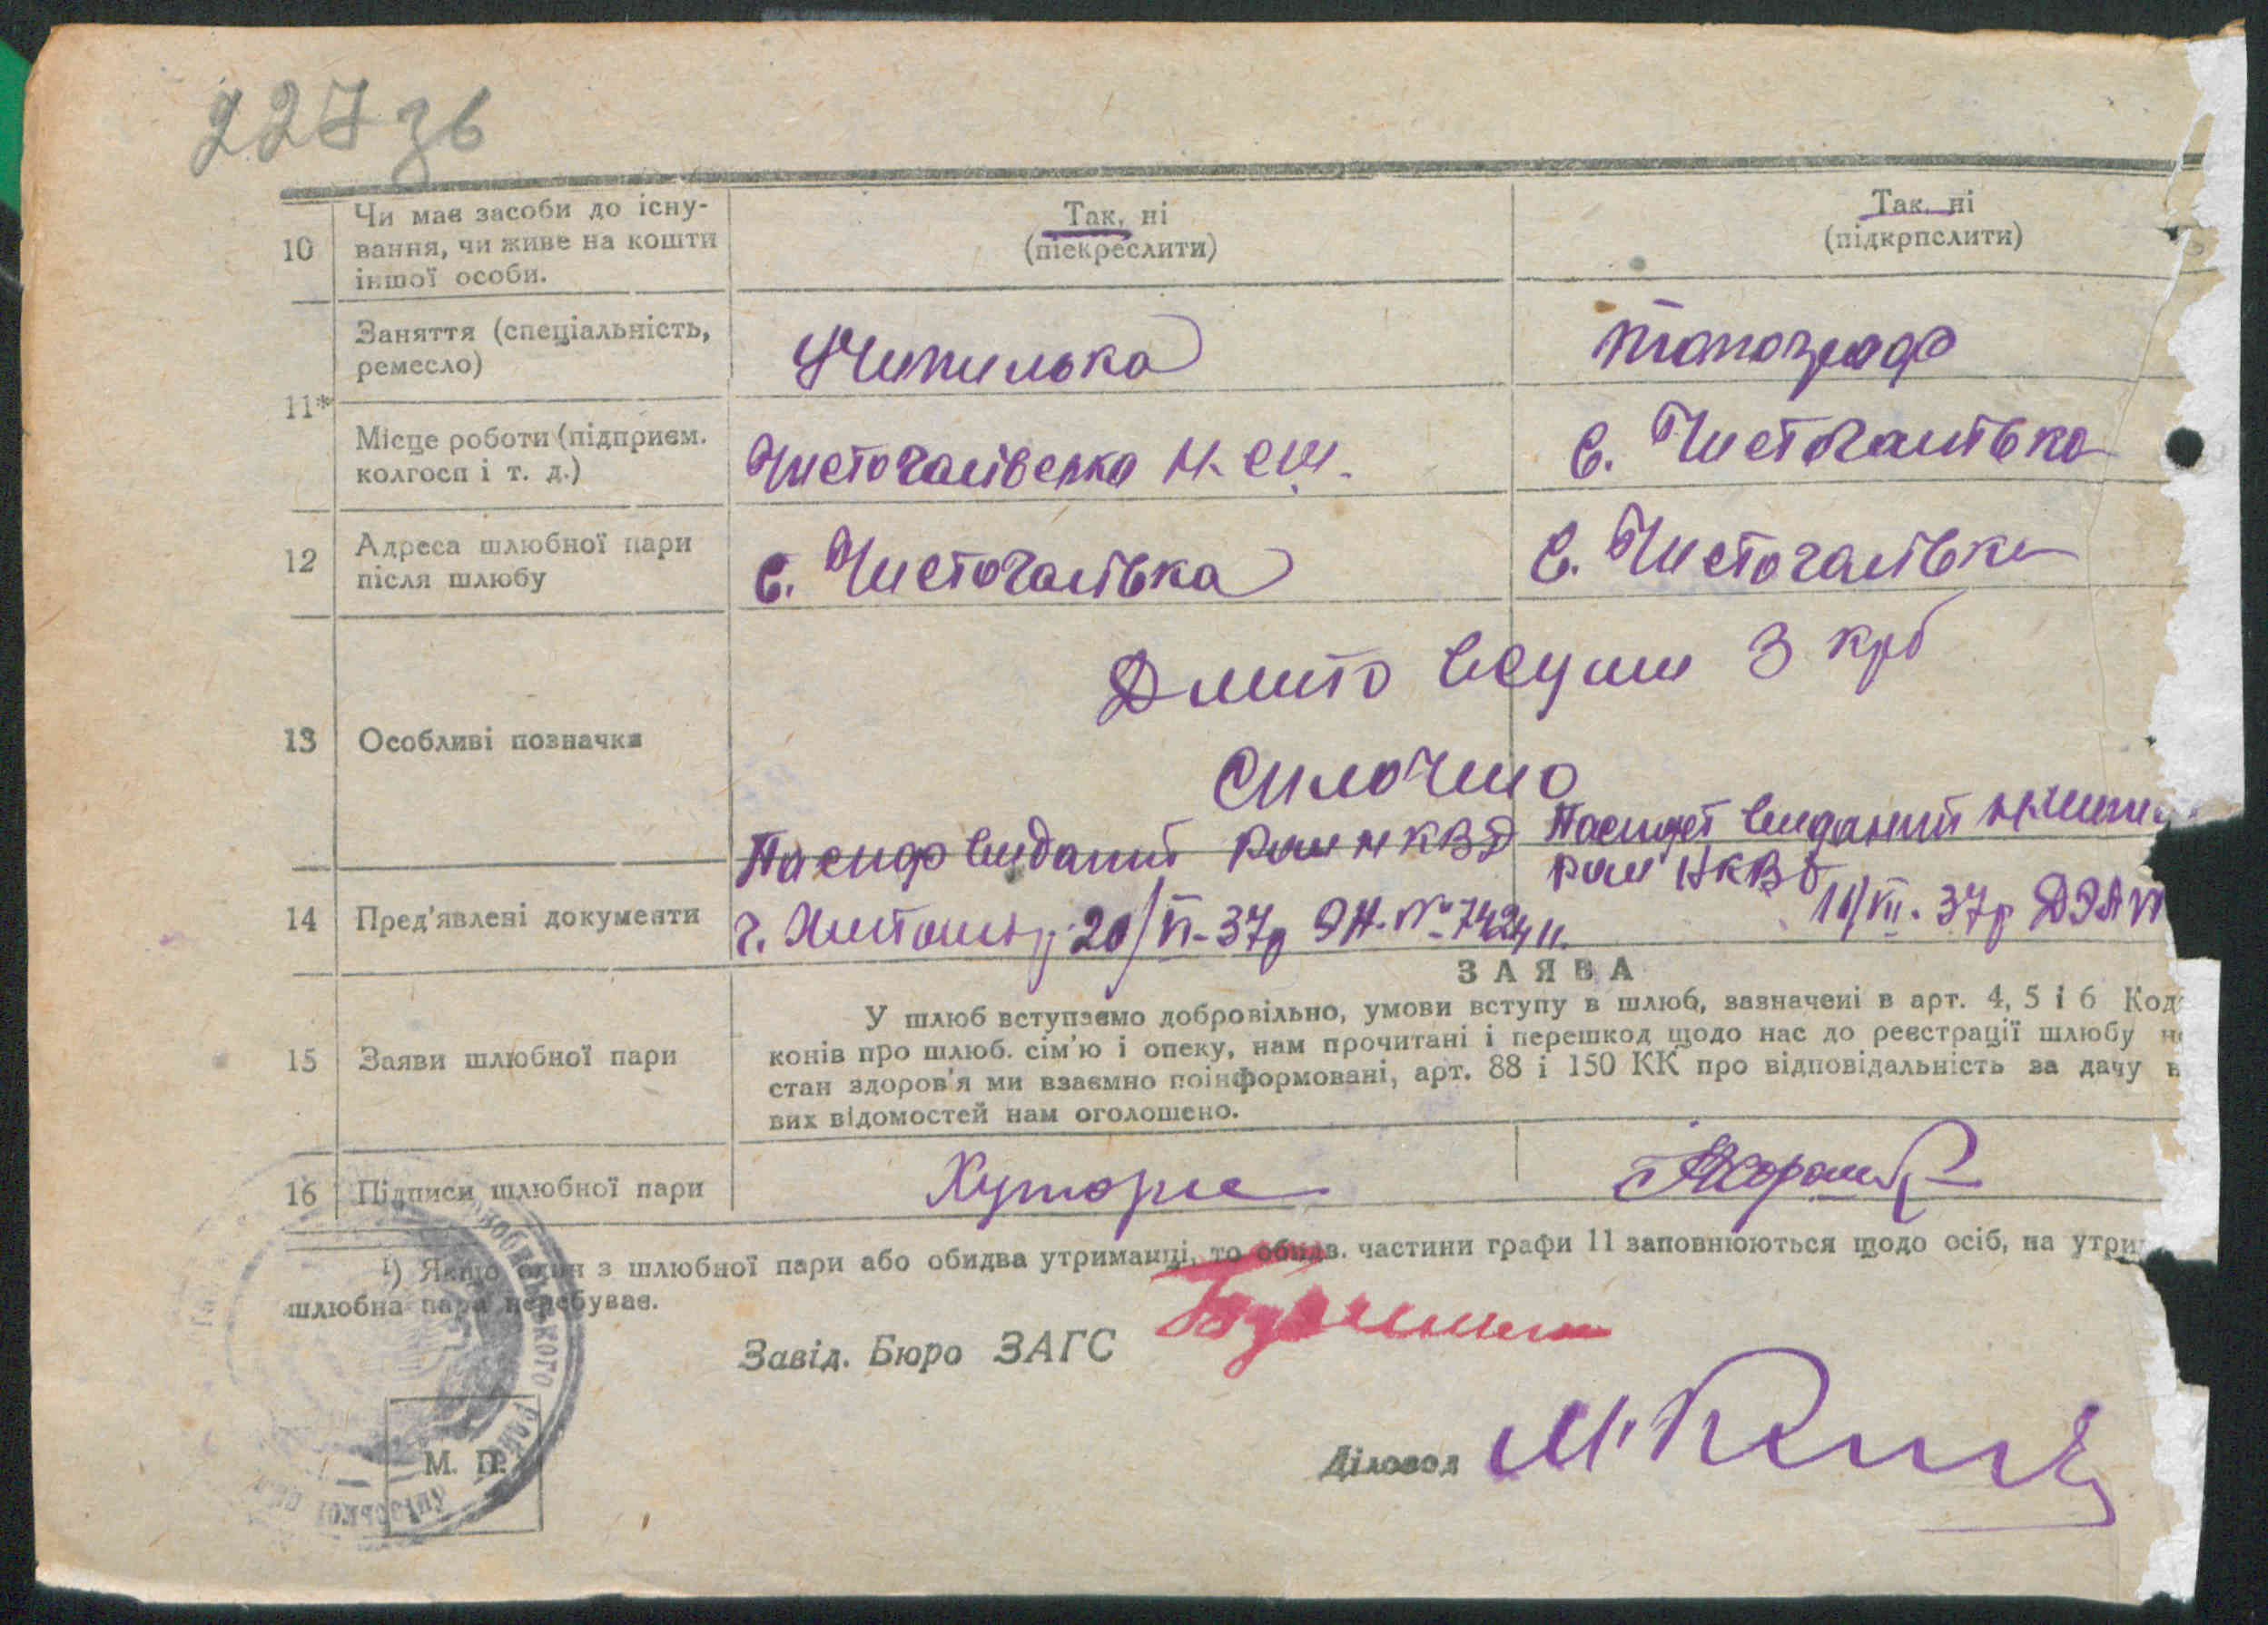 227 зв
10
Чи має засоби до існу-
вання, чи живе на кошти
іншої особи.
Так, ні
(піекреслити)
Так, ні
(підкрпслити)
11*
Заняття (спеціальність,
ремесло)
Учителька
топограф
Місце роботи (підприєм.
колгосп і т. д.)
Чистогалівська Н.С.Ш.
с. Чистогалівка
12
Адреса шлюбної пари
після шлюбу
с. Чистогалівка
с. Чистогалівка
13
Особливі позначки
Дмито всуми 3 крб
сплочено
14
Пред'явлені документи
Паспорт виданий Рай НКВД
г. 20/VI-37р ЭН. №
Паспорт виданий
рай НКВД
11/VII-37р
15
Заяви шлюбної пари
ЗАЯВА
У шлюб вступаємо добровільно, умови вступу в шлюб, зазначені в арт. 4, 5 і 6 Код
конів про шлюб. сім'ю і опеку, нам прочитані і перешкод щодо нас до реєстрації шлюбу н
стан здоров'я ми взаємно поінформовані, арт. 88 і 150 КК про відповідальність за дачу н
вих відомостей нам оголошено.
16
Підписи шлюбної пари
Хуторна
¹) Якщо один з шлюбної пари або обидва утриманці, то обидв. частини графи 11 заповнюються щодо осіб, на утри
шлюбна пара перебуває.
Завід. Бюро ЗАГС
М. П.
Діловод